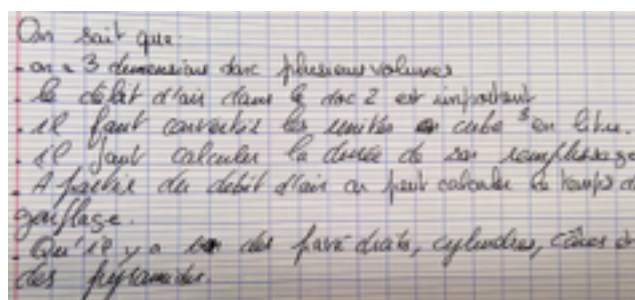 On sait que.
- on a 3 dimensions donc plusieurs volumes
- le débit d'air dans le doc 2 est important
. il faut convertir les unités en cube ³ en litre.
. il faut calculer la durée de son remplissage
. A partir du débit d'air on peut calculer le temps d
gonflage.
- Qu'il y a des pavé droits, cylindres, cônes et
des pyramides.